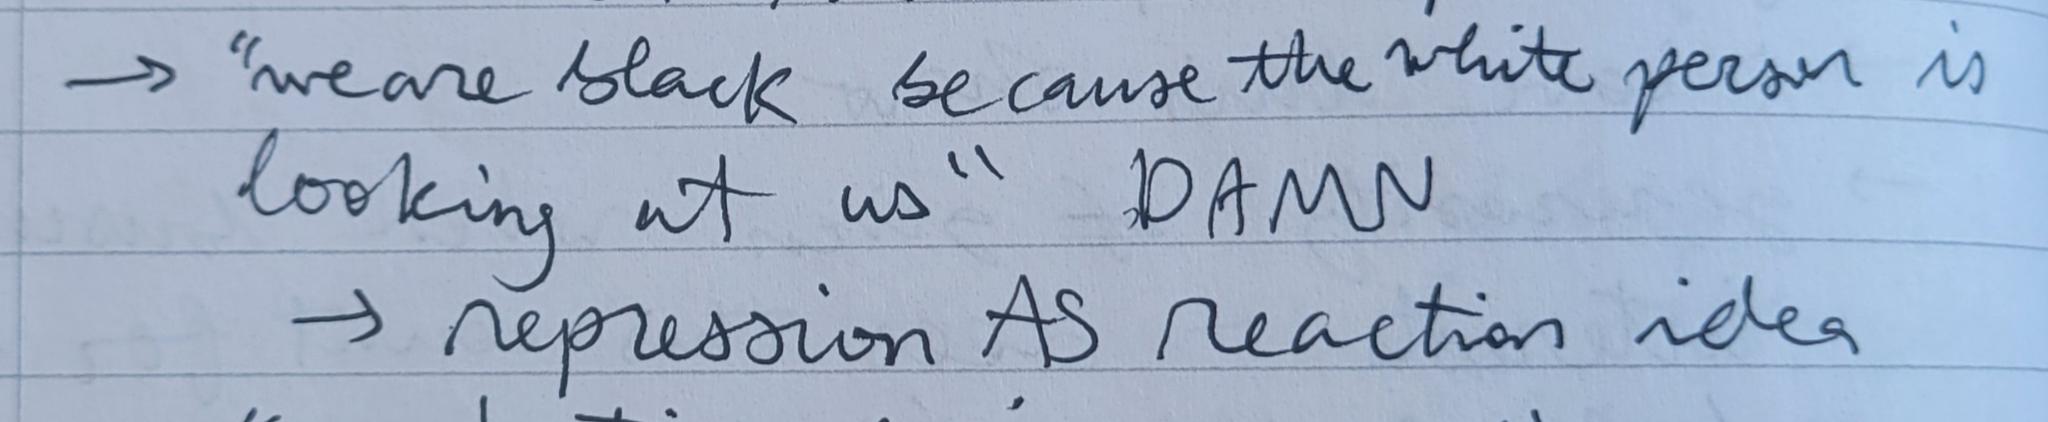 → "we are black because the white person is
looking at us" DAMN
→ repression AS reaction idea